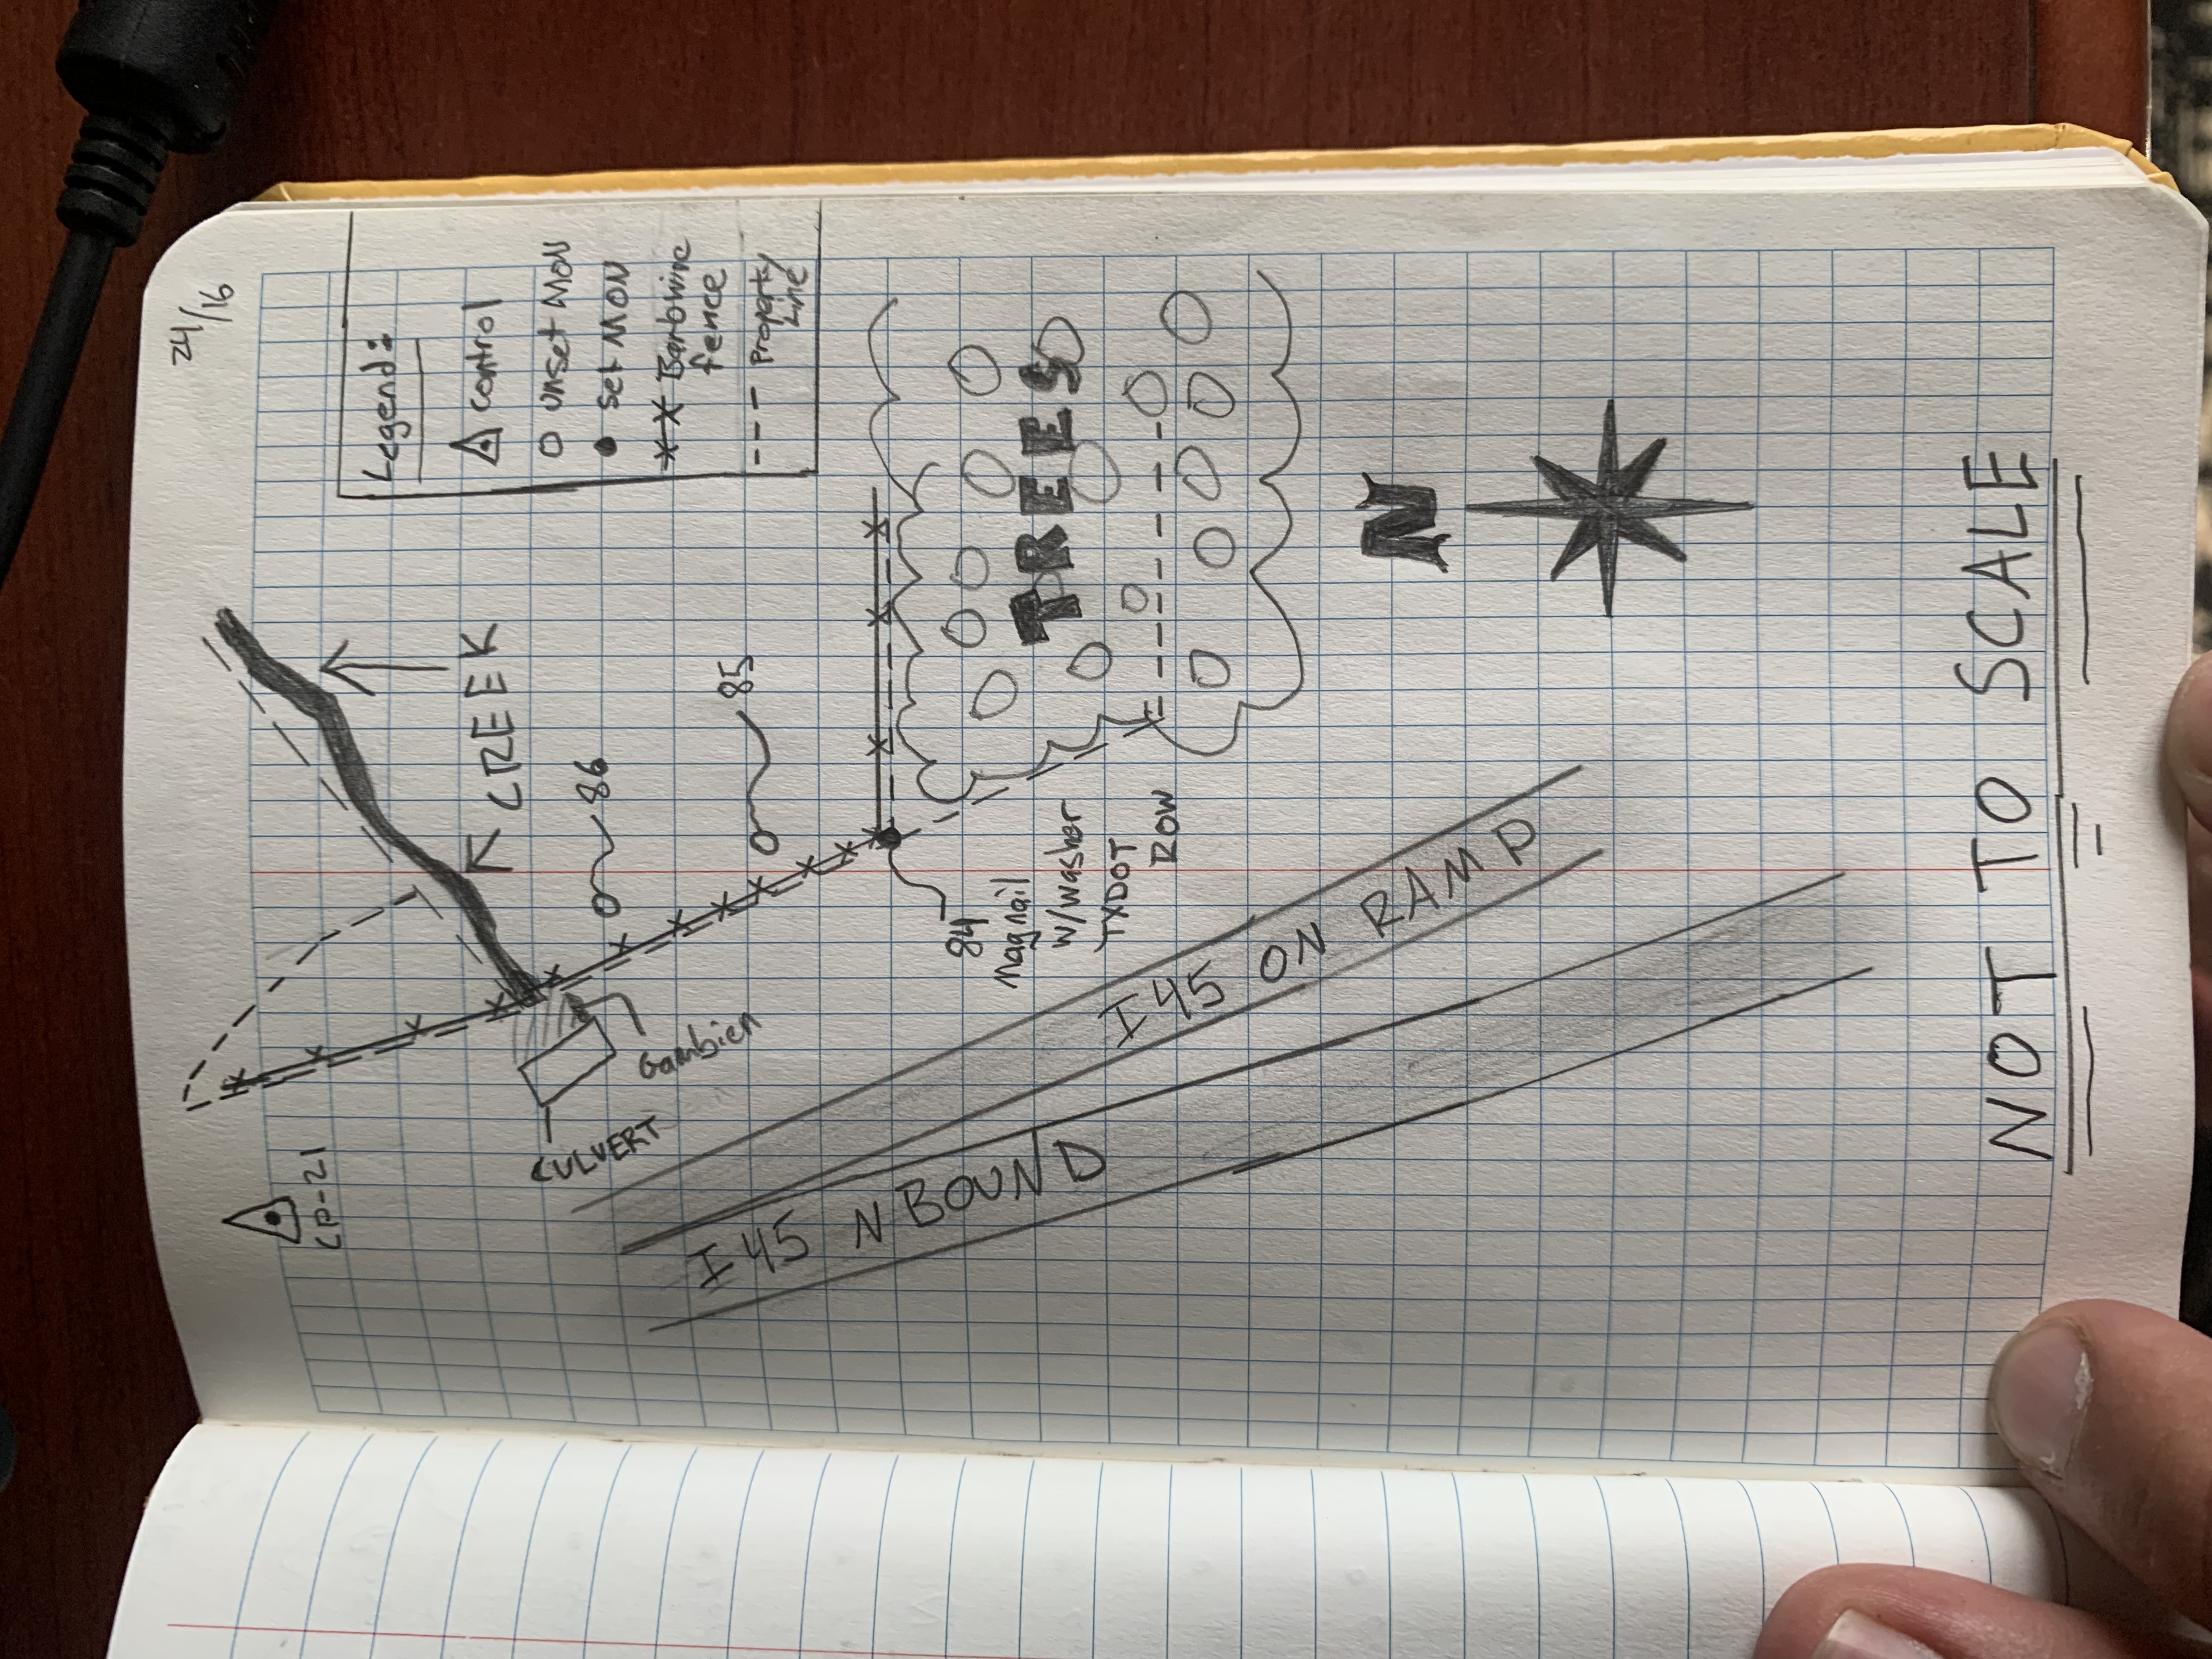 24/16
Legend:
control
unset MON
set MON
Barbwire
fence
Property
Line
CREEK
86
85
84
Magnail
w/washer
TXDOT
ROW
TREES
Gambien
CULVERT
CP-21
I45 ON RAMP
I45 N BOUND
N
NOT TO SCALE